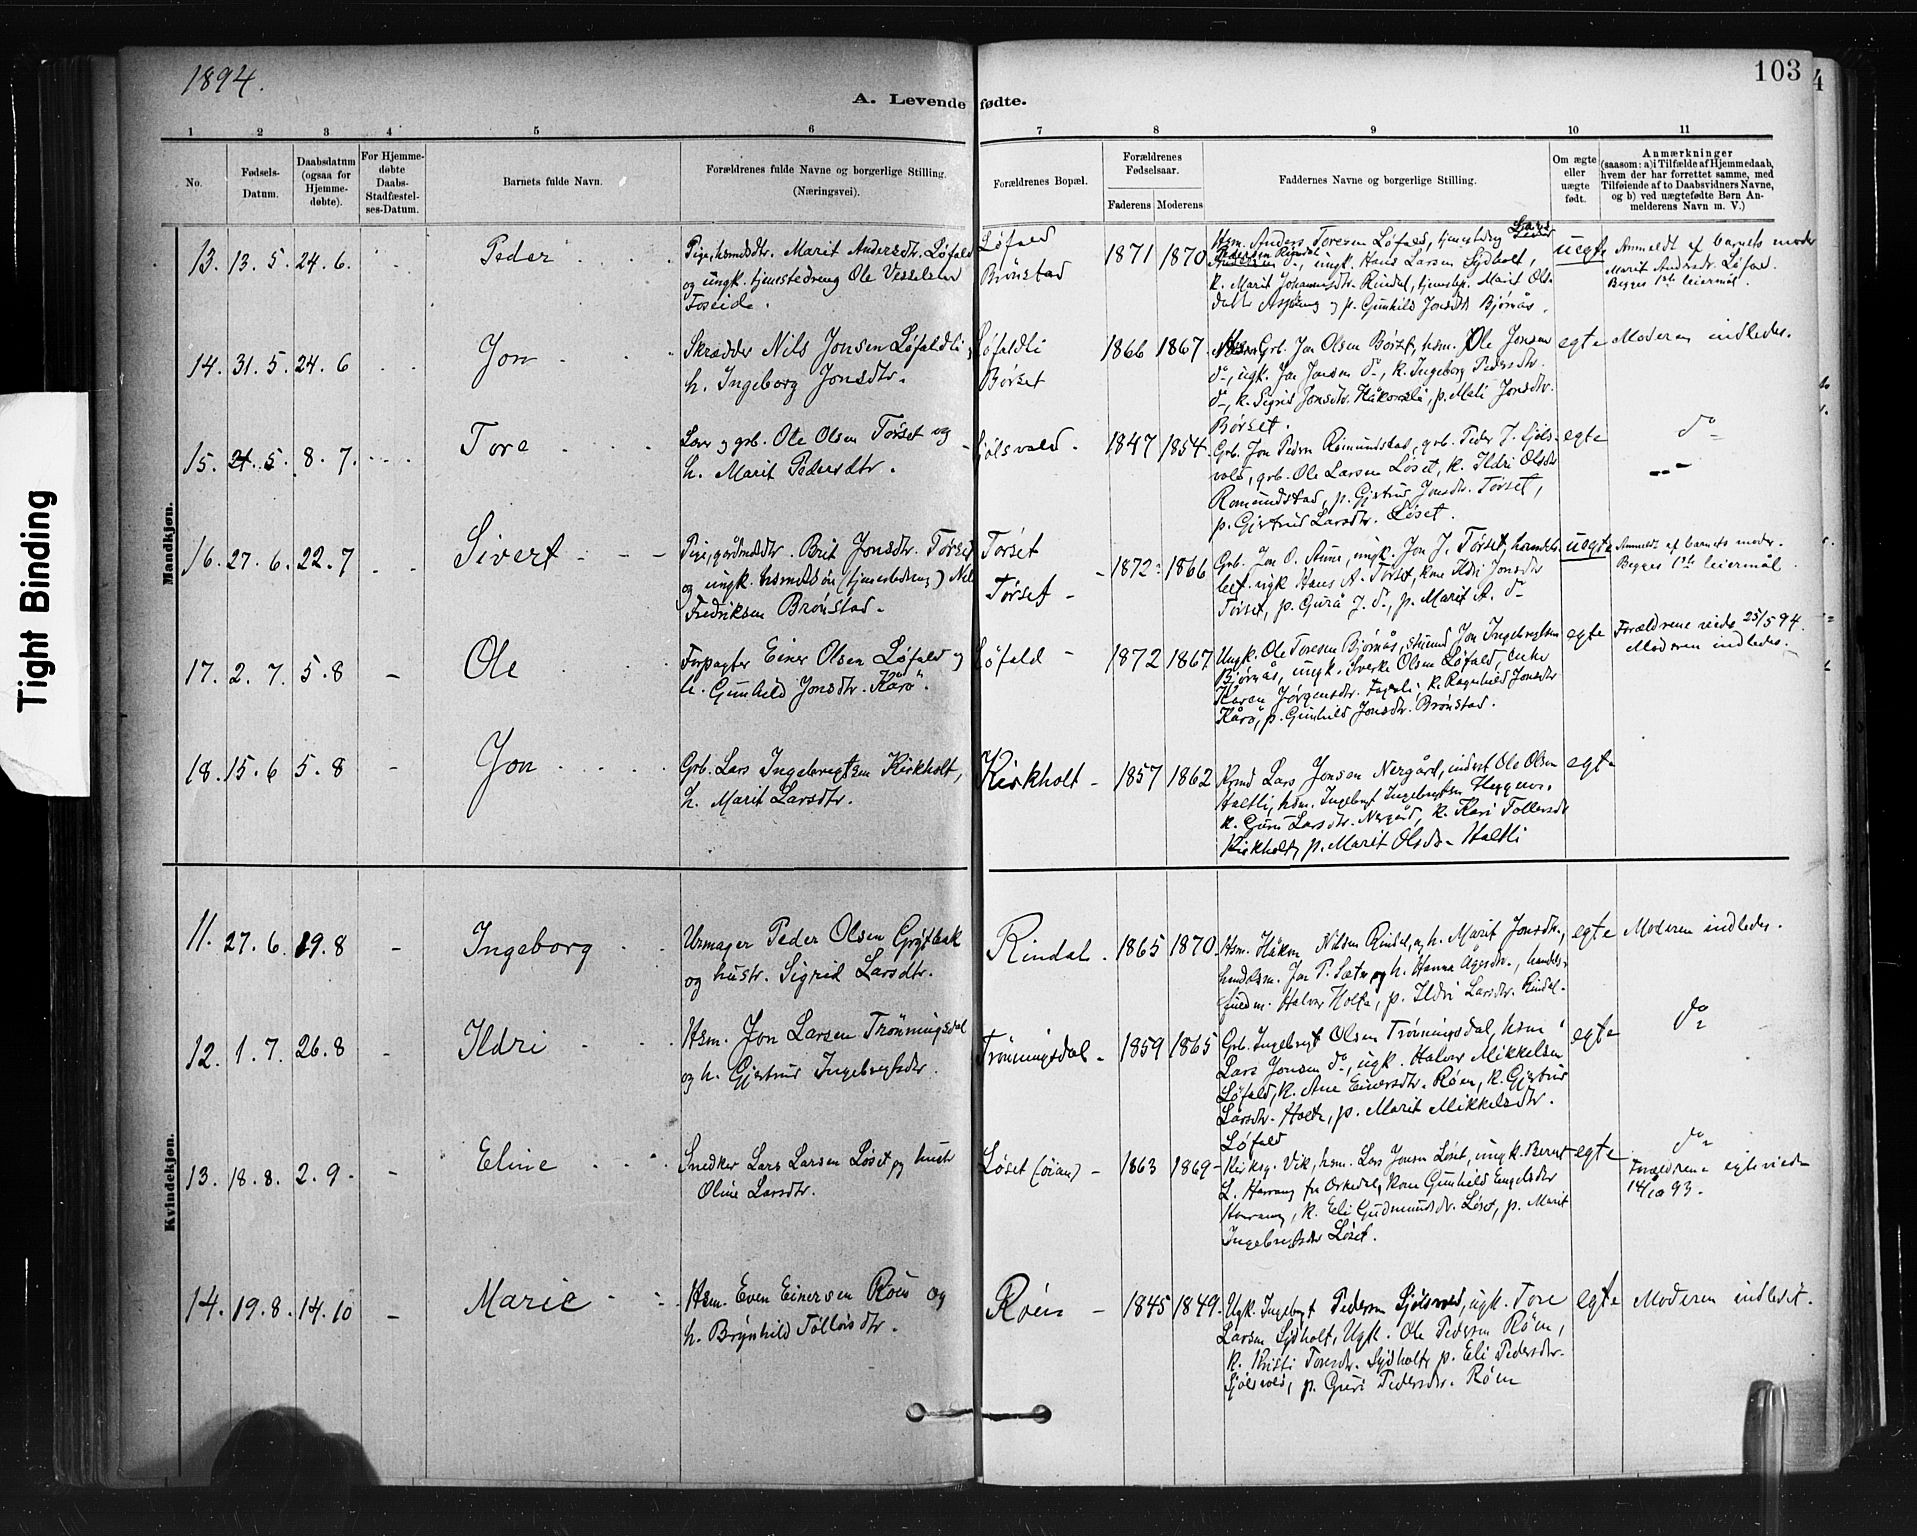 1894.
103
A. Levende fødte.
1 2 3 4 5 6 7 8 9 10 11
No.
Fødsels-
Datum.
Daabsdatum
(ogsaa for
Hjemme-
døbte).
For Hjemme-
døbte
Daabs-
Stadfæstel-
ses-Datum.
Barnets fulde Navn.
Forældrenes fulde Navne og borgerlige Stilling.
(Næringsvei).
Forældrenes Bopæl.
Forældrenes
Fødselsaar.
Faderens Moderens
Faddernes Navne og borgerlige Stilling.
Om ægte
eller
uægte
født.
Anmærkninger
(saasom: a) i Tilfælde af Hjemmedaab,
hvem der har forrettet samme, med
Tilføiende af to Daabsvidners Navne,
og b) ved uægtefødte Børn An-
melderens Navn m. V.)
Tight Binding
Mandkjøn.
13. 13. 5. 24. 6. Peder
Pige, hsmdsdtr. Marit Andersdtr. Løfald
og ungk. tjenestedreng Ole Vesselsen
Foseide.
Løfald
Brønstad
1871 1870
Hsm. Anders Toresen Løfald, tjenestedreng Lars
Pedersen Rindal, ungk. Hans Larsen Sydholt,
k. Marit Johannesdtr. Rindal, tjenestep. Marit Ols-
datter Aspøung og p. Gunhild Jonsdtr Bjørnås.
uegte
Anmeldt af barnets moder
Marit Andersdr. Løfald.
Begges 1ste leiermål.
14. 31. 5. 24. 6 Jon
Skrædder Nils Jonsen Løfaldli,
h. Ingeborg Jonsdtr.
Løfaldli
Børset
1866 1867
Grb. Jon Olsen Børset, hsm. Ole Jonsen
do, ugk. Jon Jonsen do, k. Ingeborg Pedersdtr.
do, k. Sigrid Jonsdtr. Håkonsli, p. Mali Jonsdtr.
Børset.
egte Moderen indledes.
15. 21. 5. 8. 7. Tore
Lærer og grb. Ole Olsen Tørset og
h. Marit Pedersdtr.
Sjølsvold.
1847 1854
Grb. Jon Peders Romundstad, grb. Peder J. Sjøls-
vold, grb. Ole Larsen Løset, k. Ildri Olsdtr
Romundstad, p. Gjertrud Jonsdtr. Tørset,
p. Gjertrud Larsdtr. Løset.
egte do
16. 27. 6. 22. 7 Sivert
Pige, gårdmdsdtr. Brit Jonsdtr. Tørset
og ungk. hsmdssøn (tjenestedreng) Nils
Fredriksen Brønstad.
Tørset
Tørset
1872 1866
Grb. Jon O. Aune, ungk. Jon J. Tørset, handels-
bet. ugk Hans A. Tørset, kone Ildri Jonsdtr
Tørset, p. Gurå J. do, p. Marit A. do
uegte
Anmeldt af barnets moder.
Begges 1ste leiermål.
17. 2. 7. 5. 8 Ole
Forpagter Einer Olsen Løfald og
h. Gunhild Jonsdtr. Kårø.
Løfald
1872 1867
Ungk. Ole Toresen Bjørnås, Jon Ingebrigtsen
Bjørnås, ungk. Sverke Olsen Løfald, enke
Karen Jørgensdtr. Fagerli, k. Ragnhild Jonsdtr
Kårø, p. Gunhild Jonsdtr. Brønstad.
egte
Forældrene viede 25/5 94.
Moderen indledes.
18. 15. 6 5. 8 Jon
Grb. Lars Ingebrigtsen Kirkholt,
h. Marit Larsdtr.
Kirkholt
1857 1862
Lars Jonsen Nergård, inderst Ole Olsen
Haltli, hsm. Ingebrigt Ingebrigtsen Heggem.
k. Guru Larsdtr. Nergård, k. Kari Tollersdr
Kirkholt, p. Marit Olsdr. Haltli
egte
Kvindekjøn.
11. 27. 6. 19. 8 Ingeborg
Urmager Peder Olsen Grytbak
og hustr. Sigrid Larsdtr.
Rindal
1865 1870
Hsm. Håkon Nilsen Rindal, og h. Marit Jonsdtr.,
handelsm. Jon P. Sæter og h. Hanna Ågesdtr., handels-
fuldm. Halvor Holte, p. Ildri Larsdtr. Rindal.
egte Moderen indledes.
12. 1. 7. 26. 8 Ildri
Hsm. Jon Larsen Trønningsdal
og h. Gjertrud Ingebrigtsdtr.
Trønningsdal
1859 1865
Grb. Ingebrigt Olsen Trønningsdal, hsm.
Lars Jonsen do, ugk. Halvor Mikkelsen
Løfald, k. Ane Einersdtr. Røen, k. Gjertrud
Larsdtr. Holte, p. Marit Mikkelsdtr.
Løfald
egte do
13. 18. 8. 2. 9. Eline
Snedker Lars Larsen Løset og hustr
Oline Larsdtr.
Løset (øian)
1863 1869
Kirksg. Vik, hsm. Lars Jonsen Løset, ungk. Bernt
L. Harrang fra Orkedal, kone Gunhild Engelsdtr
Harrang, k. Eli Gudmundsdr. Løset, p. Marit
Ingebrigtsdtr Løset.
egte do
Forældrene egteviede
14/10 93.
14. 19. 8. 14. 10 Marie
Hsm. Even Einersen Røen og
h. Brynhild Tølløvsdtr.
Røen
1845 1849
Ugk. Ingebrigt Pedersen Sjølsvold, ugk. Tore
Larsen Sydholt, Ugk. Ole Pedersen Røen,
k. Kristi Toresdr. Sydholt, p. Eli Pedersdtr.
Sjølsvold, p. Guri Pedersdr. Røen
egte Moderen indledet.